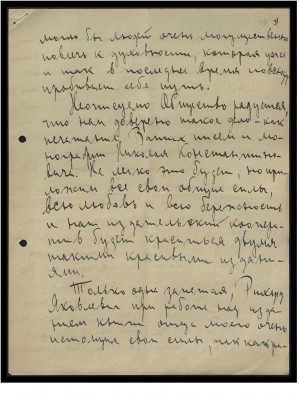 могло бы людей очень могущественно
повлечь к духовности, которая уже
и так в последнее время повсюду
пробивает себе путь.
Неописуемо Общество радуется,
что нам доверено такое дело – как
печатание Ваших писем и мо-
нографии Николая Константино-
вича. Не легко это будет, но при-
ложим все свои общие силы,
всю любовь и всю бережность
и наш издательский коопера-
тив будет краситься двумя
такими красивыми издани-
ями.
Только одна заметая, Рихард
Яковлевич при работе над изда-
нием книги отца моего очень
истощил свои силы, так как при-